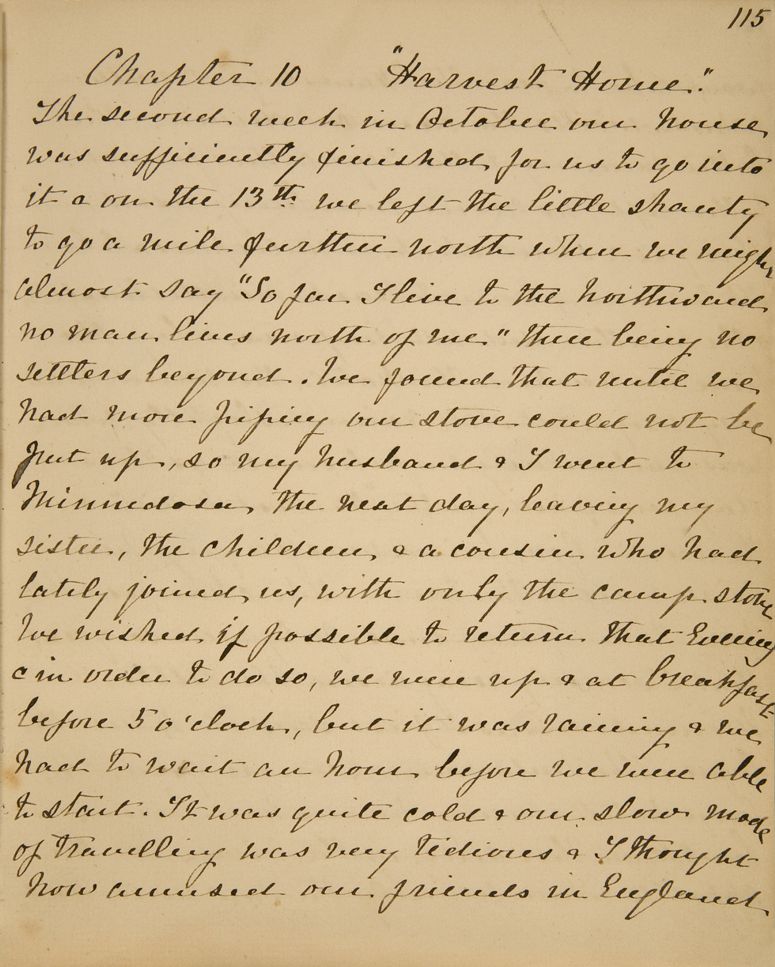 115
Chapter 10 "Harvest Home."
The second week in October our house
was sufficiently finished for us to go into
it & on the 13th we left the little shanty
to go a mile further north where we might
almost say "So far I live to the northward
no man lives north of me" there being no
settlers beyond. We found that until we
had more piping our stove could not be
put up, so my husband & I went to
Minnedosa, the next day, leaving my
sister, the children, & a cousin who had
lately joined us, with only the camp stove
We wished if possible to return that Evening
& in order to do so, we were up & at breakfast
before 5 o'clock, but it was raining & we
had to wait an hour before we were able
to start. It was quite cold & our slow mode
of travelling was very tedious & I thought
how amused our friends in England